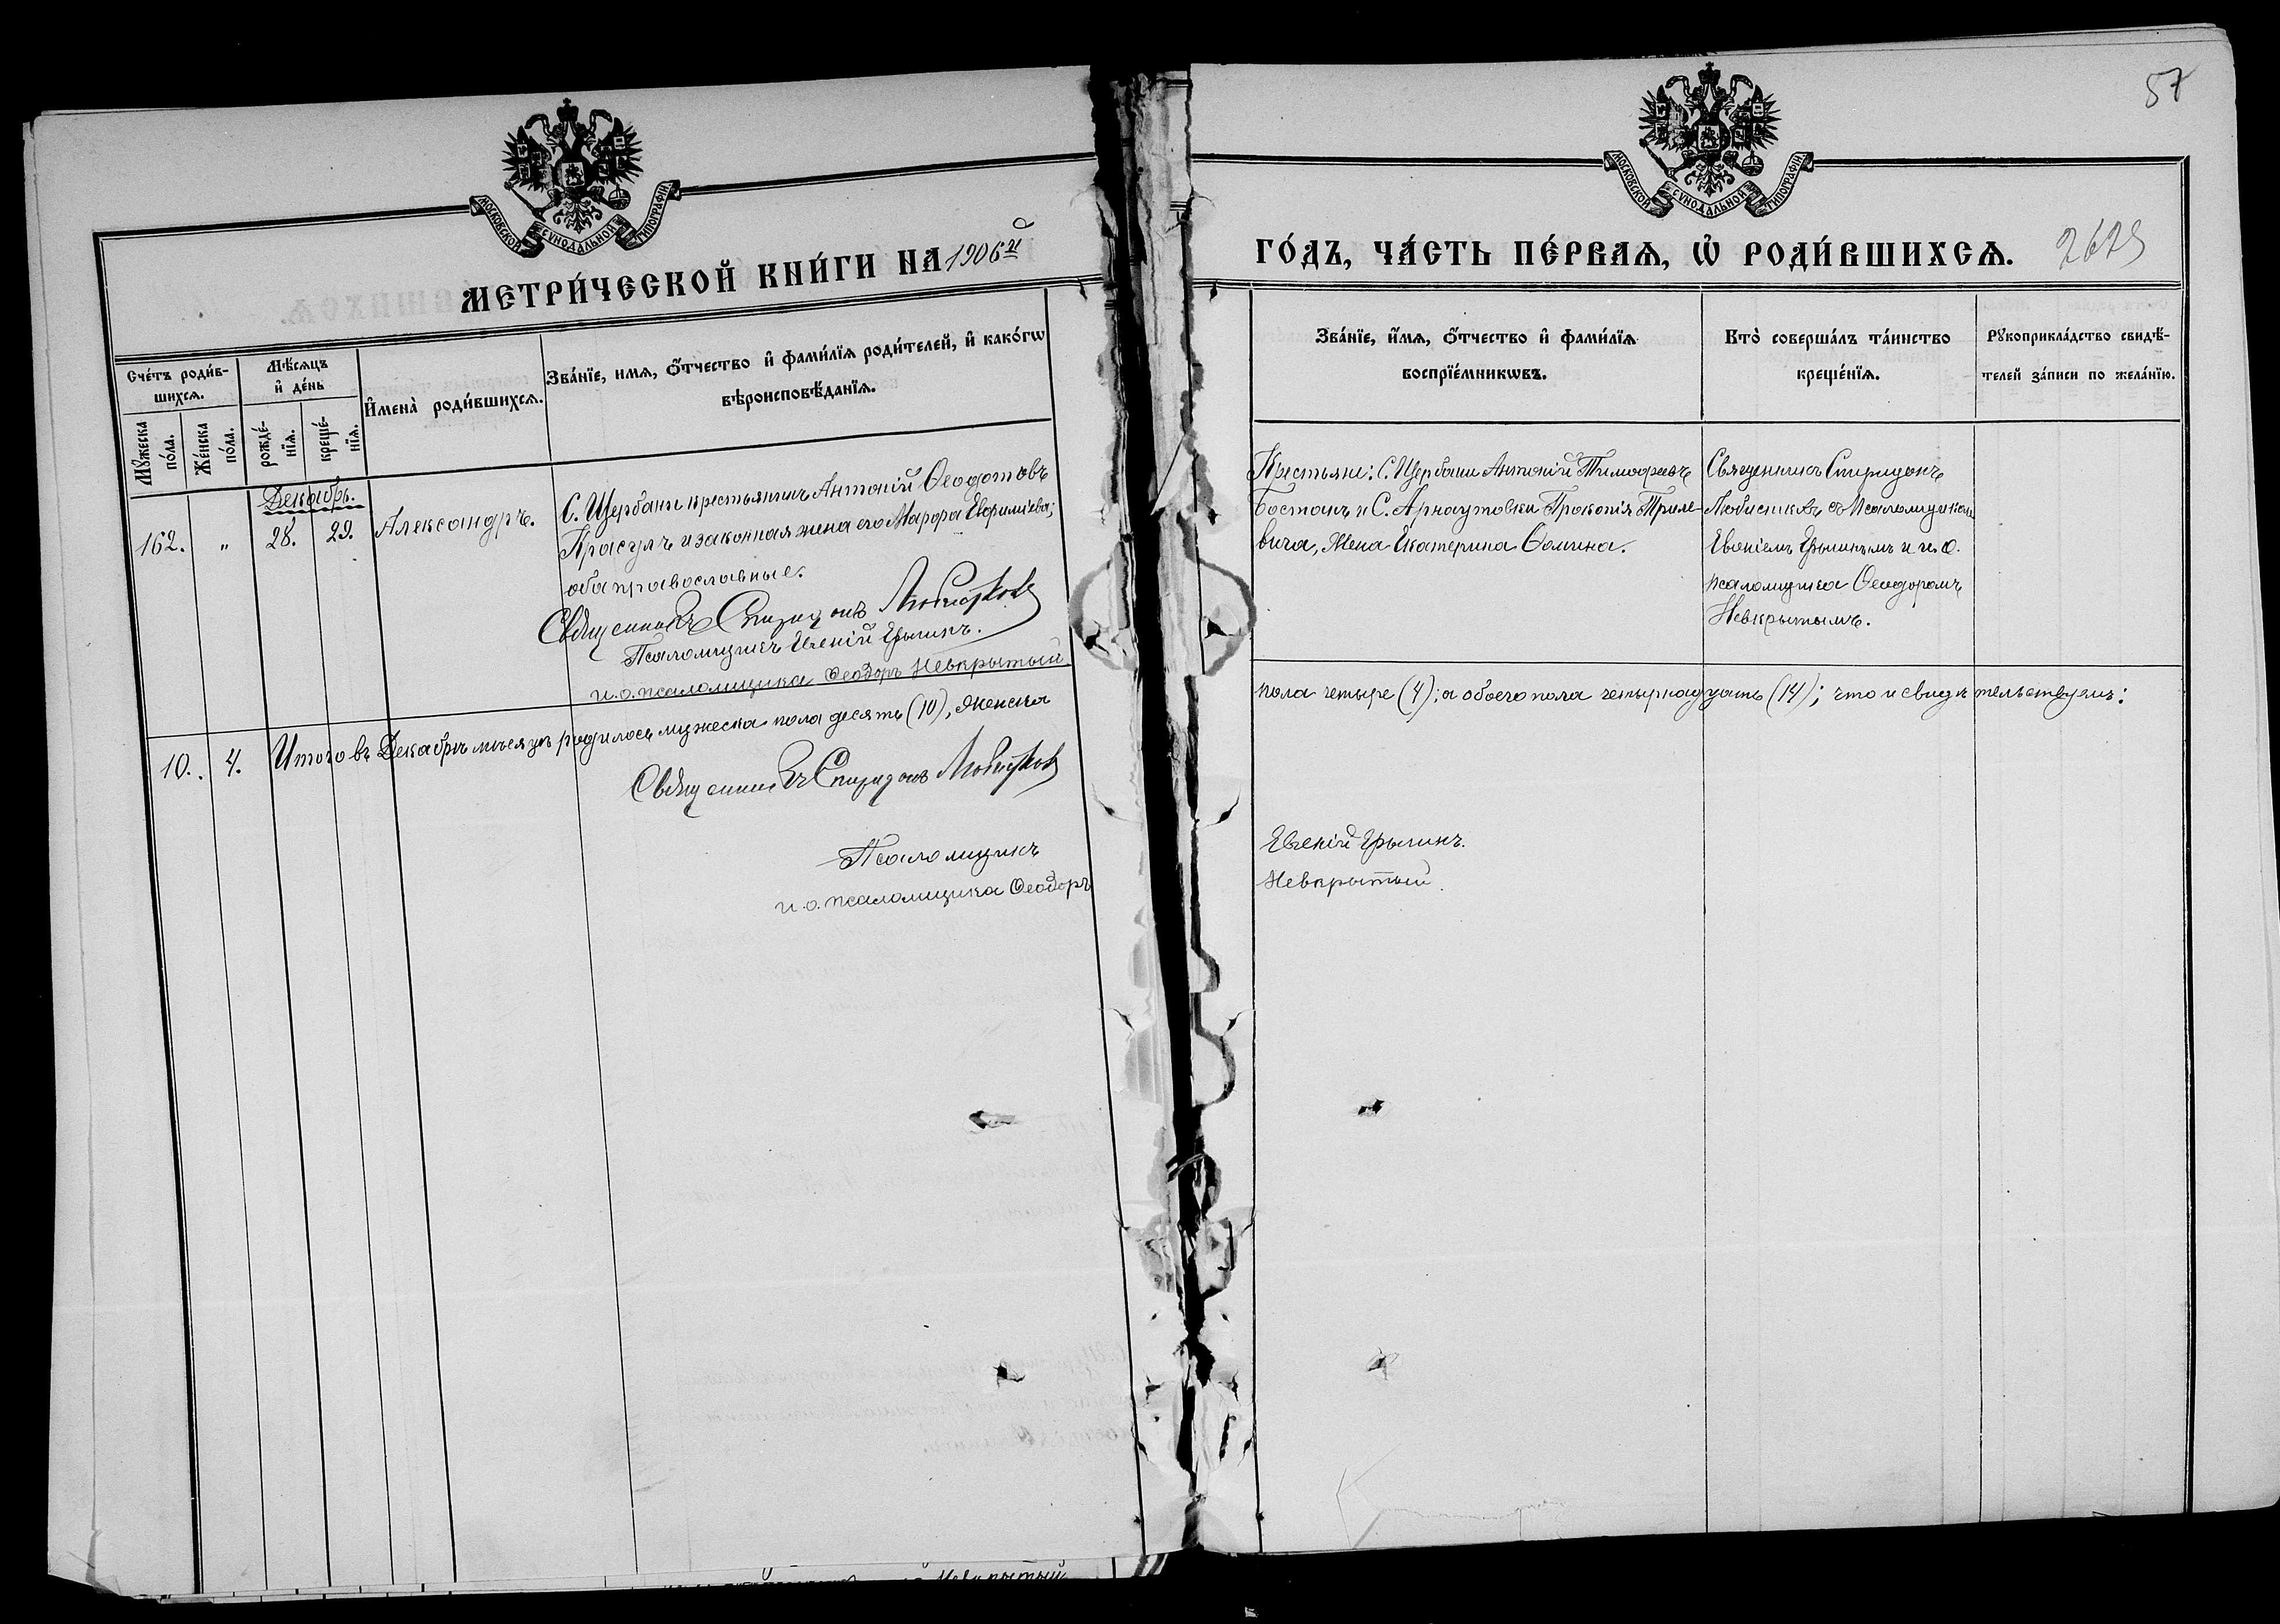 57
МОСКОВСКОЙ СѴНОДАЛЬНОЙ ТИПОГРАФІИ
МОСКОВСКОЙ СѴНОДАЛЬНОЙ ТИПОГРАФІИ
МЕТРИ́ЧЕСКОЙ КНИ́ГИ НА 1906й
ГО́ДЪ, ЧА́СТЬ ПЕ́РВАѦ, Ѽ РОДИ́ВШИХСѦ.
Сче́тъ роди́в-
шихсѧ.
Мꙋ́жеска
по́ла.
Же́нска
по́ла.
Мѣ́сѧцъ
и҆ де́нь
рожде́-
нїѧ.
креще́-
нїѧ.
И҆мена̀ роди́вшихсѧ.
Зва́нїе, имѧ, ѻ҆́тчество и҆ фами́лїѧ роди́телей, и҆ како́гѡ
вѣроисповѣ́данїѧ.
Зва́нїе, и҆́мѧ, ѻ҆́тчество и҆ фами́лїѧ
воспрїе́мникѡвъ.
Кто̀ соверша́лъ та́инство
креще́нїѧ.
Рꙋкоприкла́дство свидѣ́-
телей за́писи по жела́нїю.
Декабрь.
162.
"
28.
29.
Александръ.
С. Щербани крестьянинъ Антоній Ѳеодотовъ
Прасулъ и законная жена его Марфа
оба православные.
Священникъ Спиридонъ Любистковъ
Псаломщикъ Евгеній
и. о. псаломщика Ѳеодоръ Невкрытый
Крестьяне: С. Щербани Антоній Тимоѳеевъ
Бостанъ и С. Арнаутовки Прокопія Триле-
вича, жена Екатерина Ѳомина.
Священникъ Спиридонъ
Любистковъ съ Псаломщикомъ
и и. о.
псаломщика Ѳеодоромъ
Невкрытымъ.
10. 4. Итого въ Декабрѣ мѣсяцѣ родилось мужеска пола десять (10), женска
пола четыре (4); а обоего пола четырнадцать (14); что и свидѣтельствуемъ:
Священникъ Спиридонъ Любистковъ
Псаломщикъ
Евгеній
и. о. псаломщика Ѳеодоръ
Невкрытый.